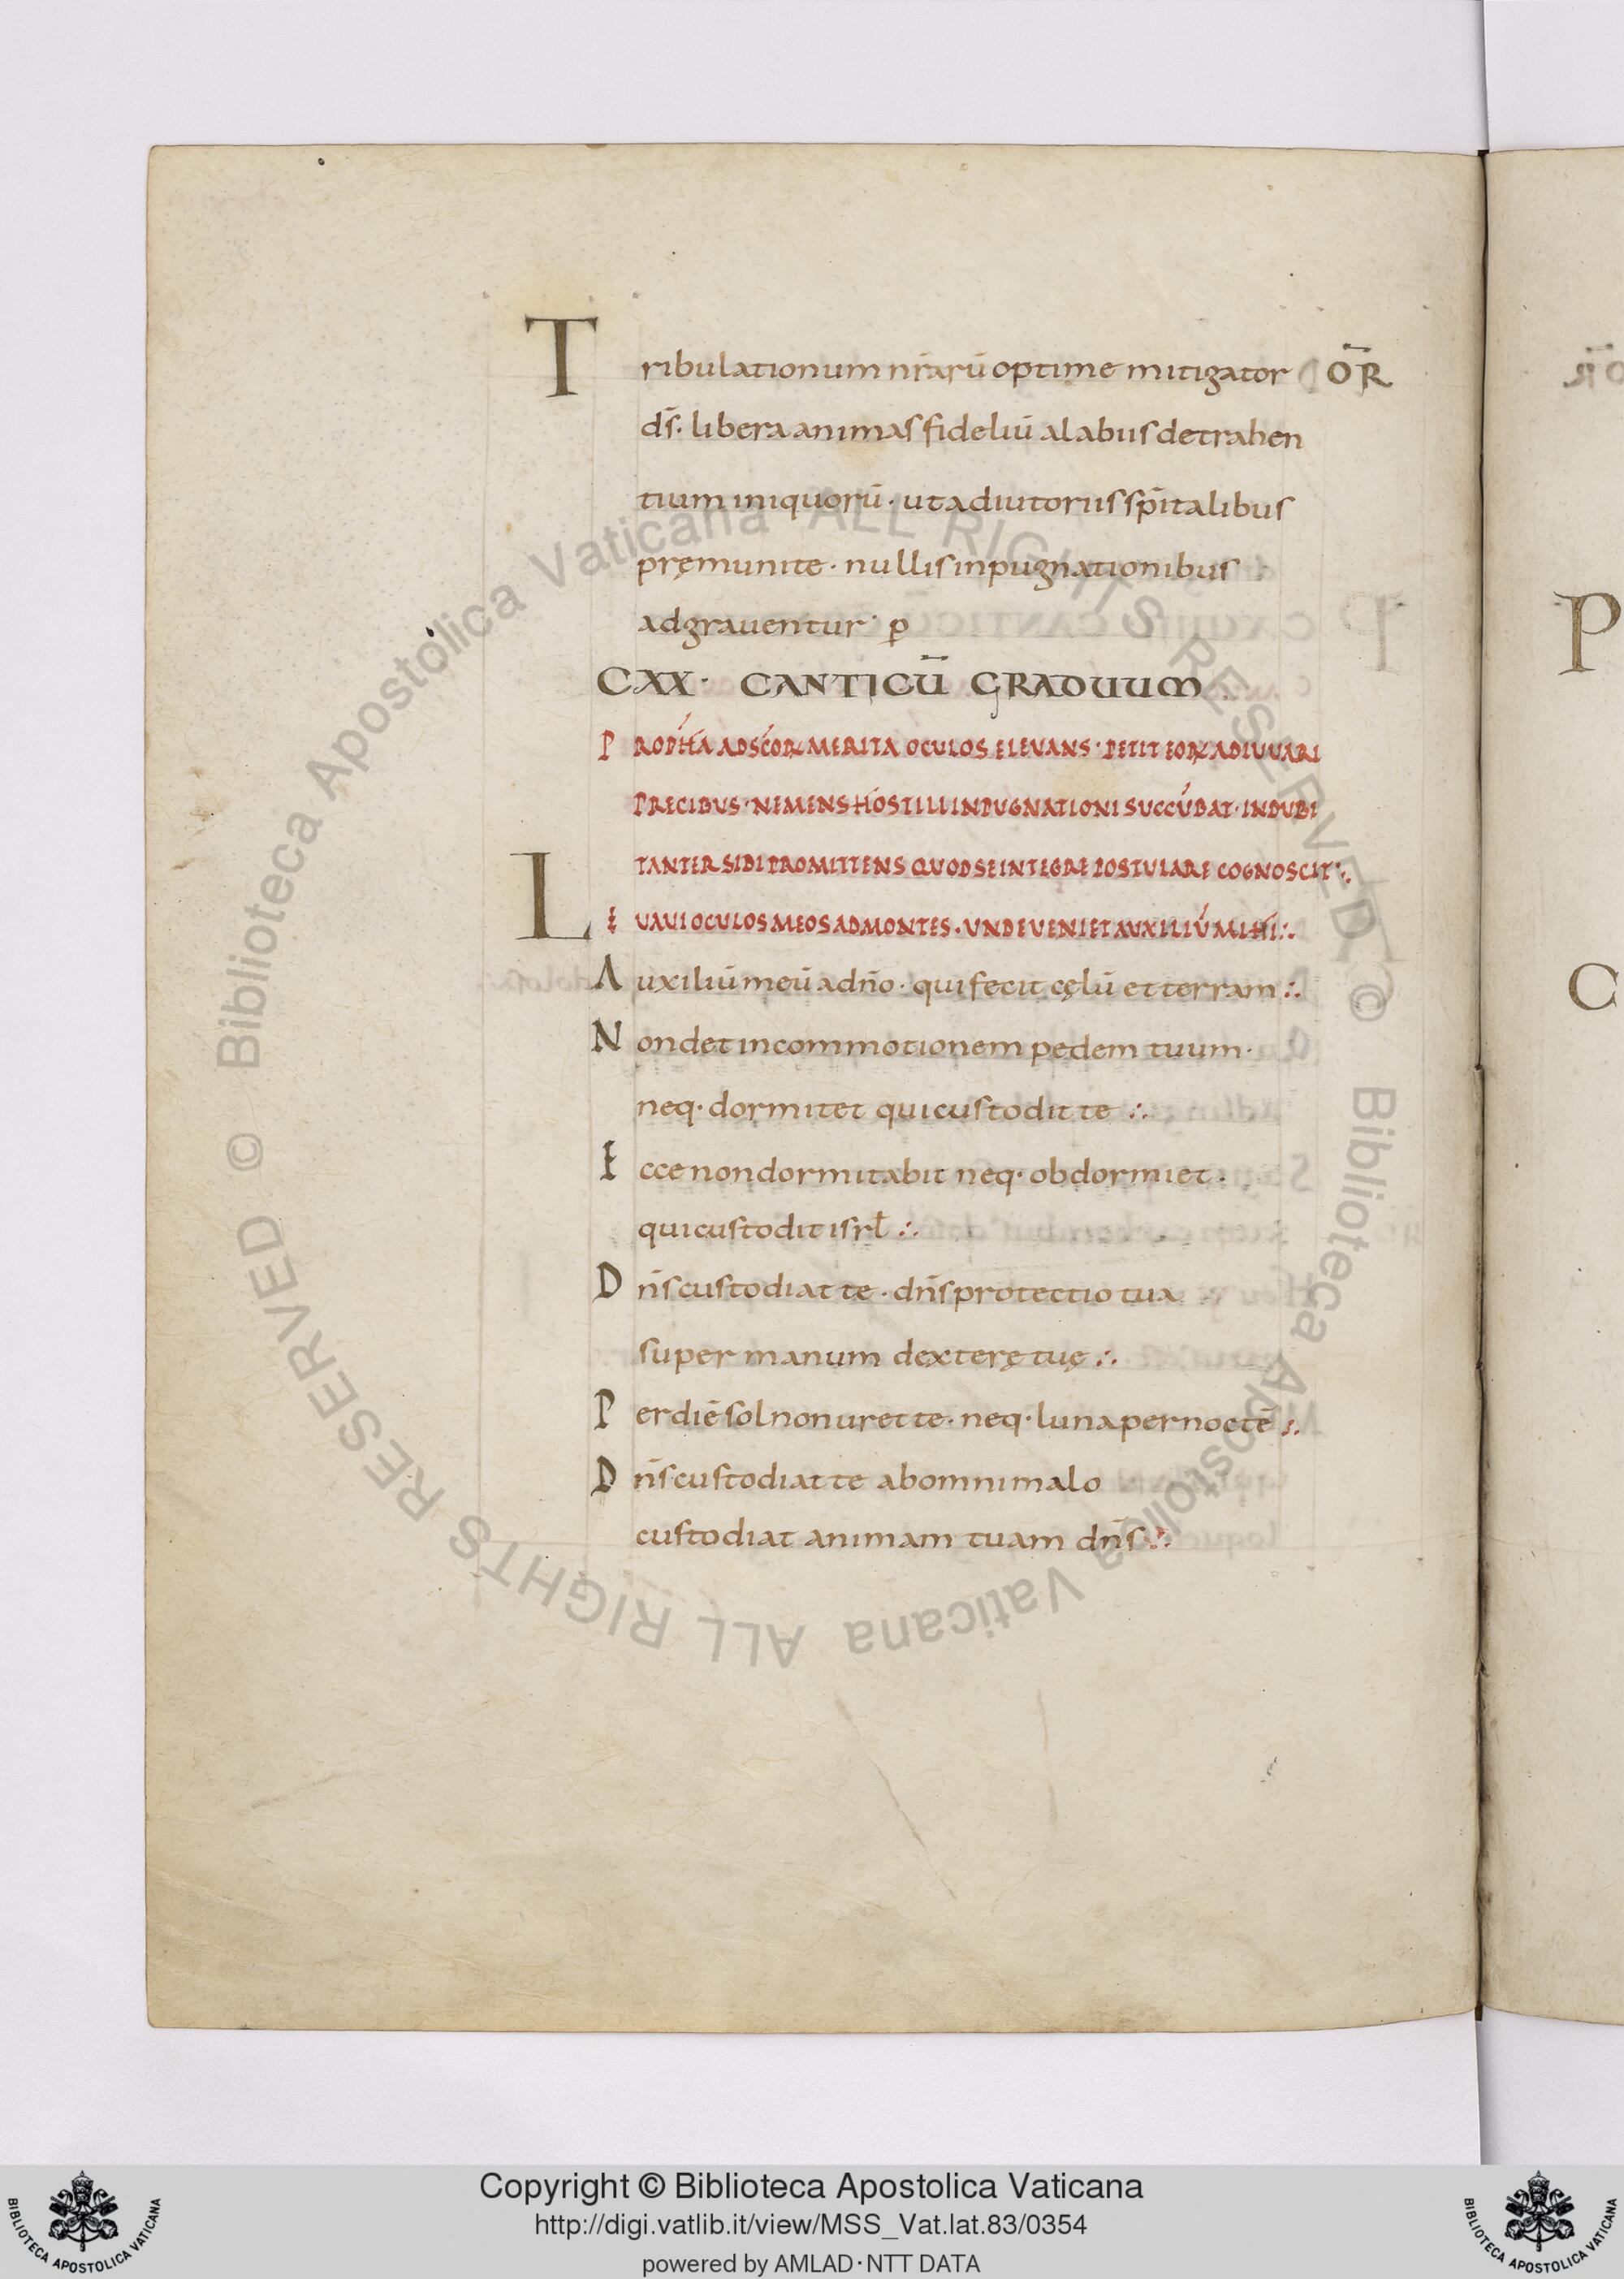 Tribulationum nr̄arū optime mitigator OR̄
ds̄· libera animas fideliū a labiis detrahen
tium iniquorū· ut adiutoriis sp̄italibus
pręmunite· nullis inpugnationibus
adgrauentur· p̲
CXX· CANTICŪ GRADUUM
PROPHA AD SCOꝜ MERITA OCULOS ELEVANS· PETIT EOꝜ ADIUVARI
PRECIBUS· NE MENS HOSTILI INPUGNATIONI SUCCŪBAT· INDUBI
TANTER SIBI PROMITTENS QUOD SE INTEGRE POSTULARE COGNOSCIT∴
LEUAUI OCULOS MEOS AD MONTES· UNDE UENIET AUXILIŪ MIHI∴
Auxiliū meū a dn̄o· qui fecit cęlū et terram∴
Non det in commotionem pedem tuum·
neq· dormitet qui custodit te∴
Ecce non dormitabit neq· obdormiet·
qui custodit isrł∴
Dn̄s custodiat te· dn̄s protectio tua
super manum dexterę tuę∴
Per diē sol non uret te· neq· luna per noctē∴
Dn̄s custodiat te ab omni malo
custodiat animam tuam dn̄s∴
P
C
Biblioteca Apostolica Vaticana ALL RIGHTS RESERVED ©
Biblioteca Apostolica Vaticana ALL RIGHTS RESERVED ©
Copyright © Biblioteca Apostolica Vaticana
http://digi.vatlib.it/view/MSS_Vat.lat.83/0354
powered by AMLAD·NTT DATA
BIBLIOTECA APOSTOLICA VATICANA
BIBLIOTECA APOSTOLICA VATICANA